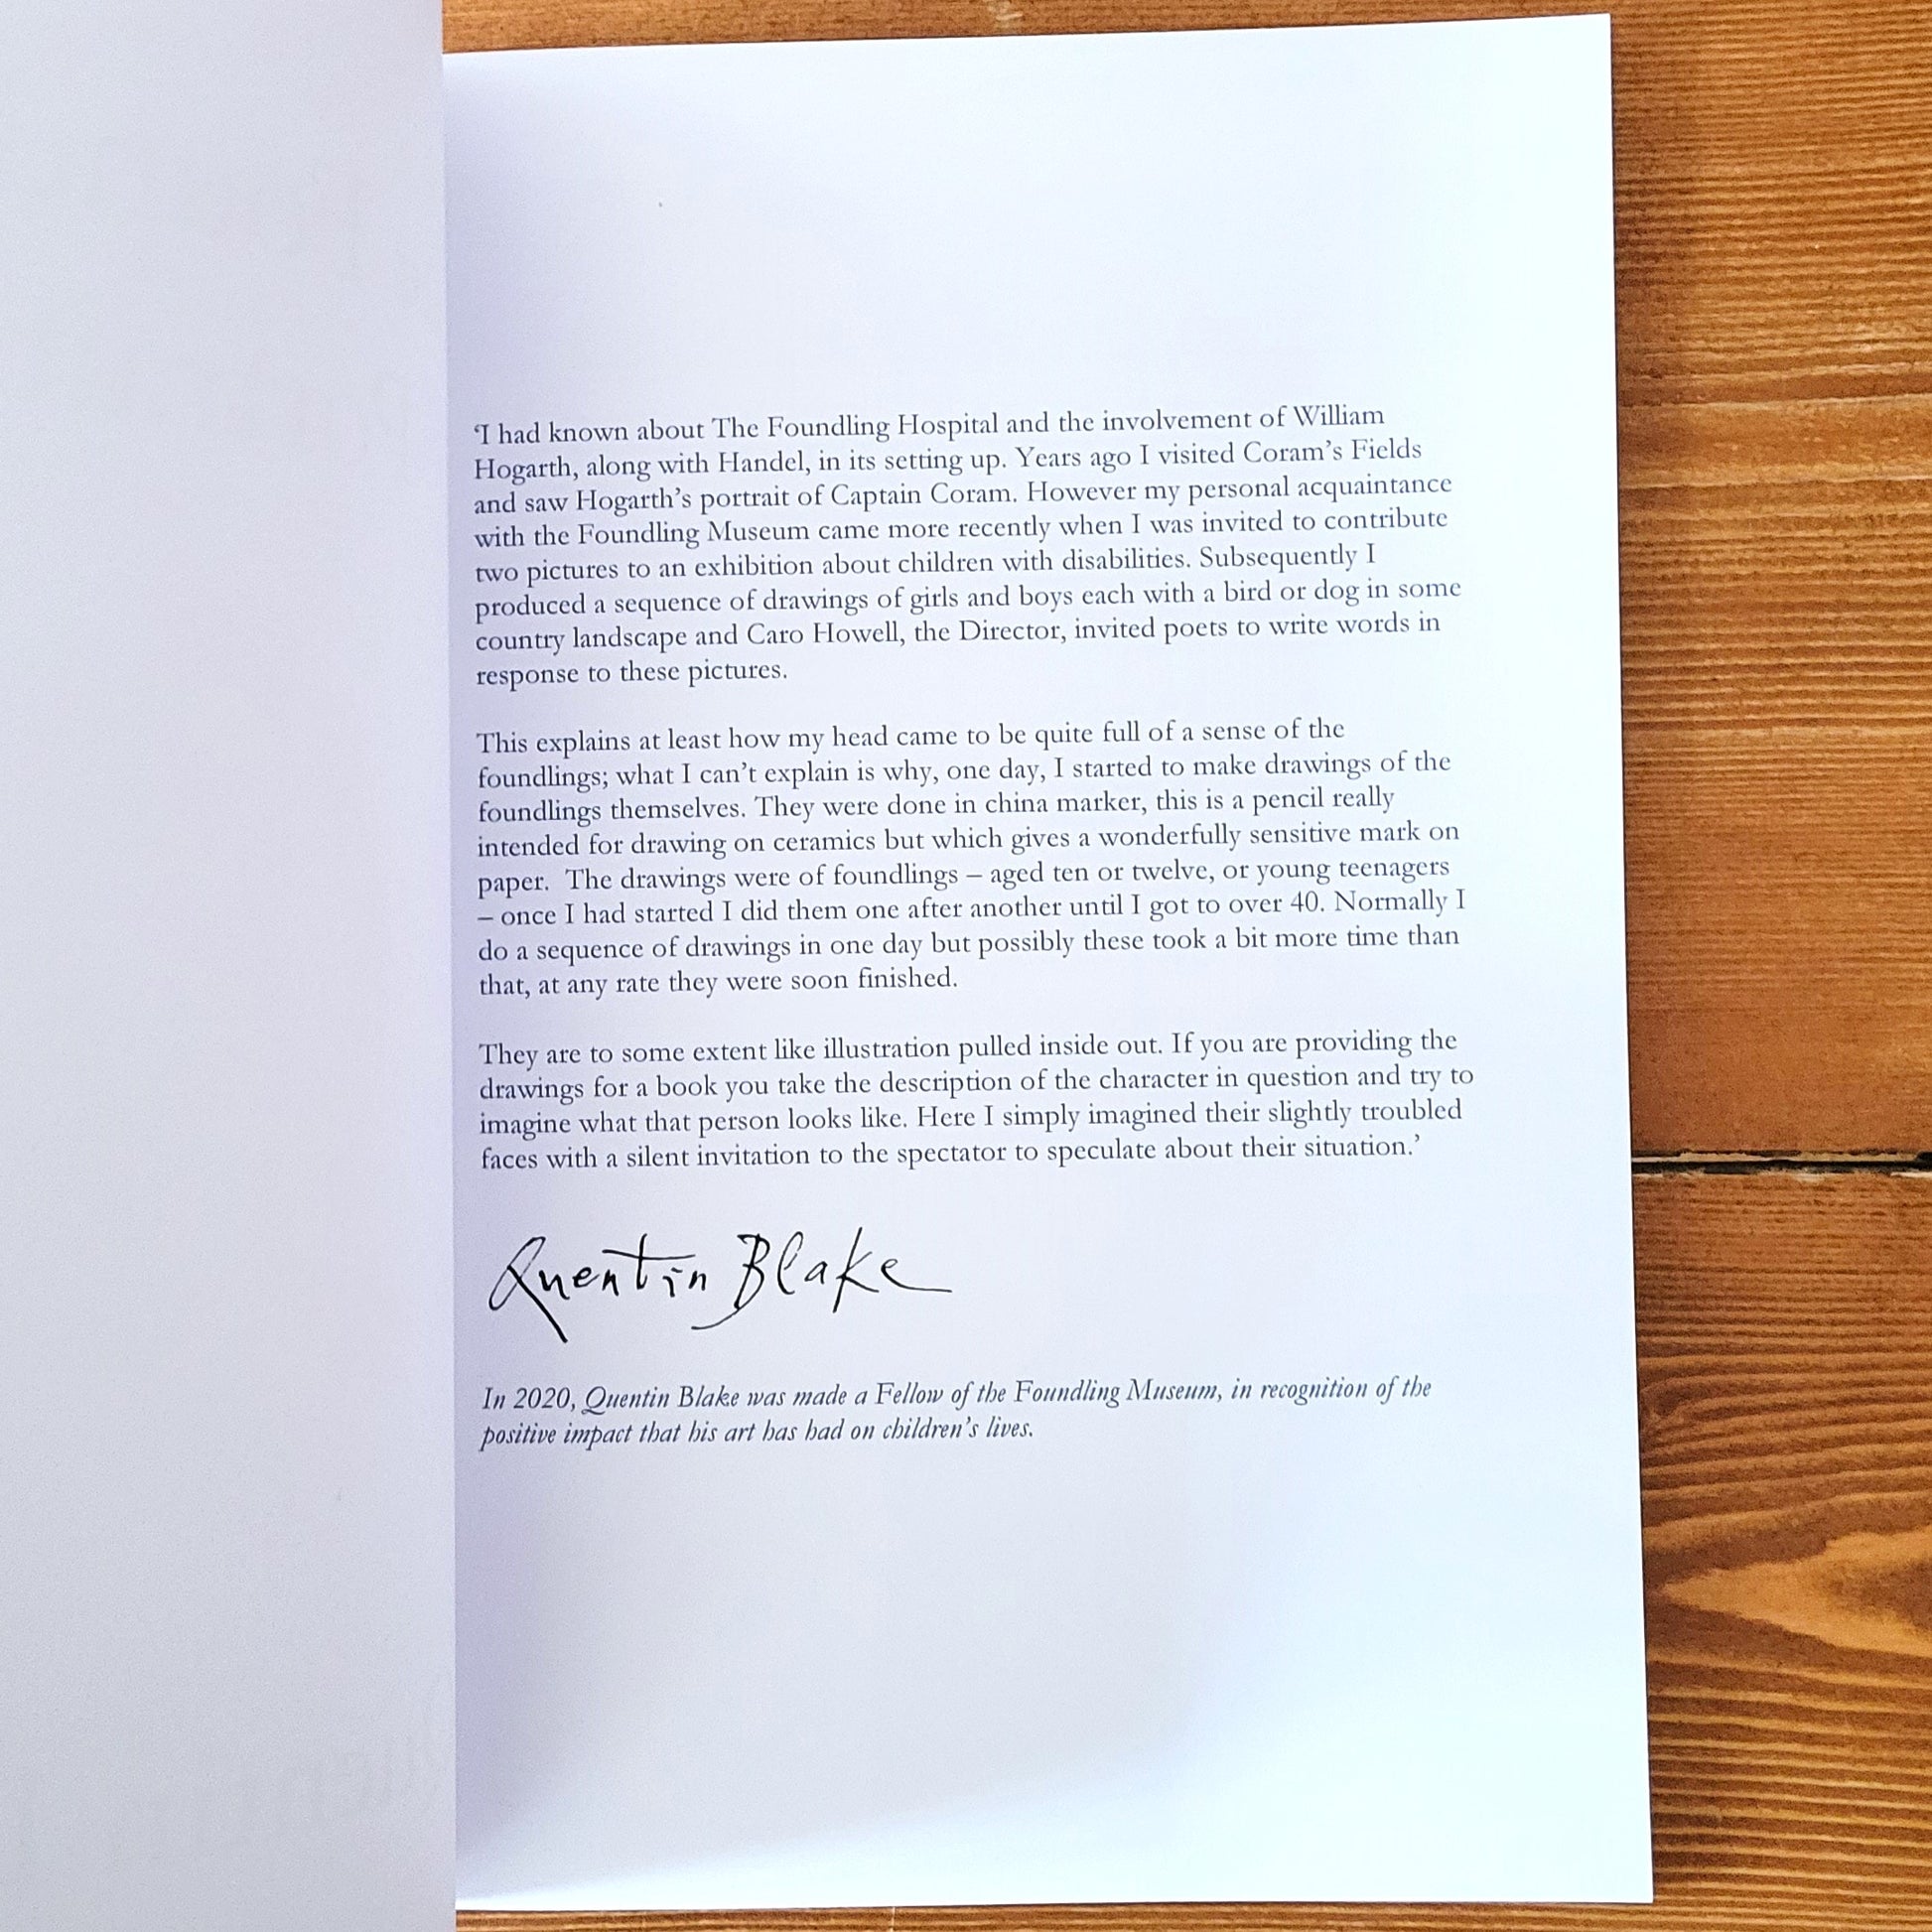 ‘I had known about The Foundling Hospital and the involvement of William
Hogarth, along with Handel, in its setting up. Years ago I visited Coram’s Fields
and saw Hogarth’s portrait of Captain Coram. However my personal acquaintance
with the Foundling Museum came more recently when I was invited to contribute
two pictures to an exhibition about children with disabilities. Subsequently I
produced a sequence of drawings of girls and boys each with a bird or dog in some
country landscape and Caro Howell, the Director, invited poets to write words in
response to these pictures.
This explains at least how my head came to be quite full of a sense of the
foundlings; what I can’t explain is why, one day, I started to make drawings of the
foundlings themselves. They were done in china marker, this is a pencil really
intended for drawing on ceramics but which gives a wonderfully sensitive mark on
paper.  The drawings were of foundlings – aged ten or twelve, or young teenagers
– once I had started I did them one after another until I got to over 40. Normally I
do a sequence of drawings in one day but possibly these took a bit more time than
that, at any rate they were soon finished.
They are to some extent like illustration pulled inside out. If you are providing the
drawings for a book you take the description of the character in question and try to
imagine what that person looks like. Here I simply imagined their slightly troubled
faces with a silent invitation to the spectator to speculate about their situation.’
Quentin Blake
In 2020, Quentin Blake was made a Fellow of the Foundling Museum, in recognition of the
positive impact that his art has had on children’s lives.